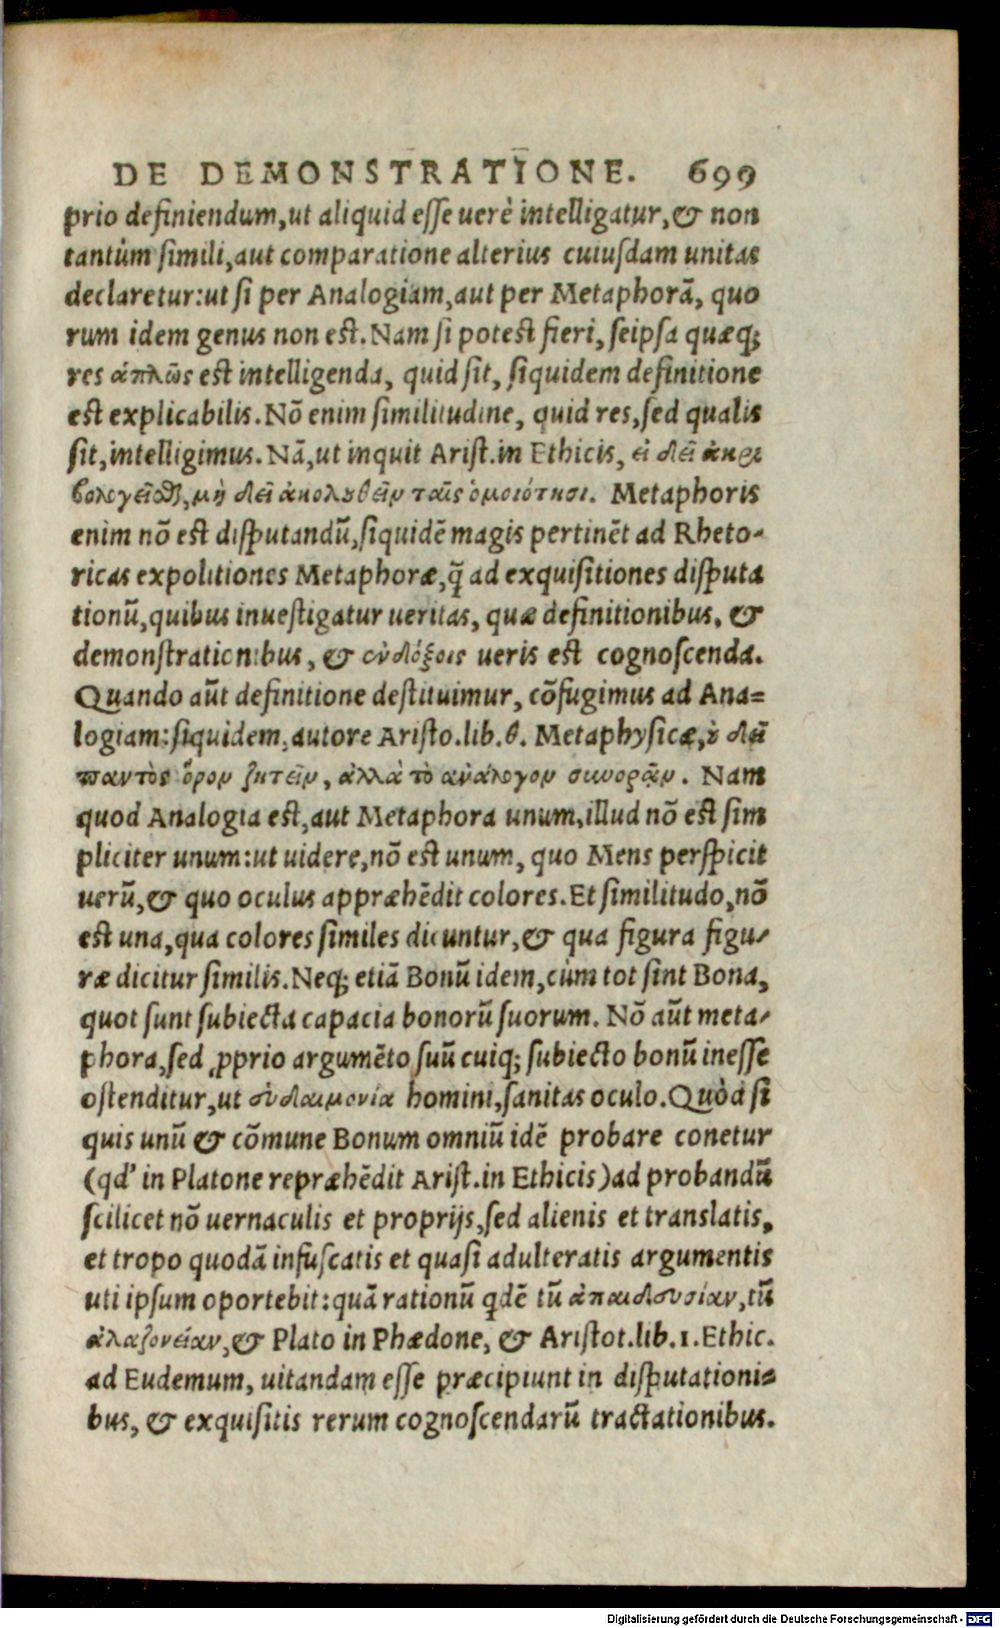 DE DEMONSTRATIONE. 699
prio definiendum, ut aliquid esse uerè intelligatur, & non
tantùm simili, aut comparatione alterius cuiusdam unitas
declaretur: ut si per Analogiam, aut per Metaphorā, quo
rum idem genus non est. Nam si potest fieri, seipsa quæq;
res ἁπλῶς est intelligenda, quid sit, siquidem definitione
est explicabilis. Nō enim similitudine, quid res, sed qualis
sit, intelligimus. Nā, ut inquit Arist. in Ethicis, εἰ δεῖ ἀκρι
βολογεῖσθ, μὴ δεῖ ἀκολουθεῖν ταῖς ὁμοιότησι. Metaphoris
enim nō est disputandū, siquidē magis pertinēt ad Rheto-
ricas expolitiones Metaphoræ, q̄ ad exquisitiones disputa
tionū, quibus inuestigatur ueritas, quæ definitionibus, &
demonstrationibus, & ἐνδόξοις ueris est cognoscenda.
Quando aūt definitione destituimur, cōfugimus ad Ana=
logiam: siquidem, autore Aristo. lib. θ. Metaphysicæ, οὐ δεῖ
παντὸς ὅρον ζητεῖν, ἀλλὰ τὸ ἀνάλογον συνορᾷν. Nam
quod Analogia est, aut Metaphora unum, illud nō est sim
pliciter unum: ut uidere, nō est unum, quo Mens perspicit
uerū, & quo oculus appræhēdit colores. Et similitudo, nō
est una, qua colores similes dicuntur, & qua figura figu-
ræ dicitur similis. Neq; etiā Bonū idem, cùm tot sint Bona,
quot sunt subiecta capacia bonorū suorum. Nō aūt meta-
phora, sed ꝓprio argumēto suū cuiq; subiecto bonū inesse
ostenditur, ut εὐδαιμονία homini, sanitas oculo. Quòd si
quis unū & cōmune Bonum omniū idē probare conetur
(qd' in Platone repræhēdit Arist. in Ethicis) ad probandū
scilicet nō uernaculis et proprijs, sed alienis et translatis,
et tropo quodā infuscatis et quasi adulteratis argumentis
uti ipsum oportebit: quā rationū qdē tū ἀπαιδευσίαν, tū
ἀλαζονείαν, & Plato in Phædone, & Aristot. lib. 1. Ethic.
ad Eudemum, uitandam esse præcipiunt in disputationi=
bus, & exquisitis rerum cognoscendarū tractationibus.
Digitalisierung gefördert durch die Deutsche Forschungsgemeinschaft - DFG